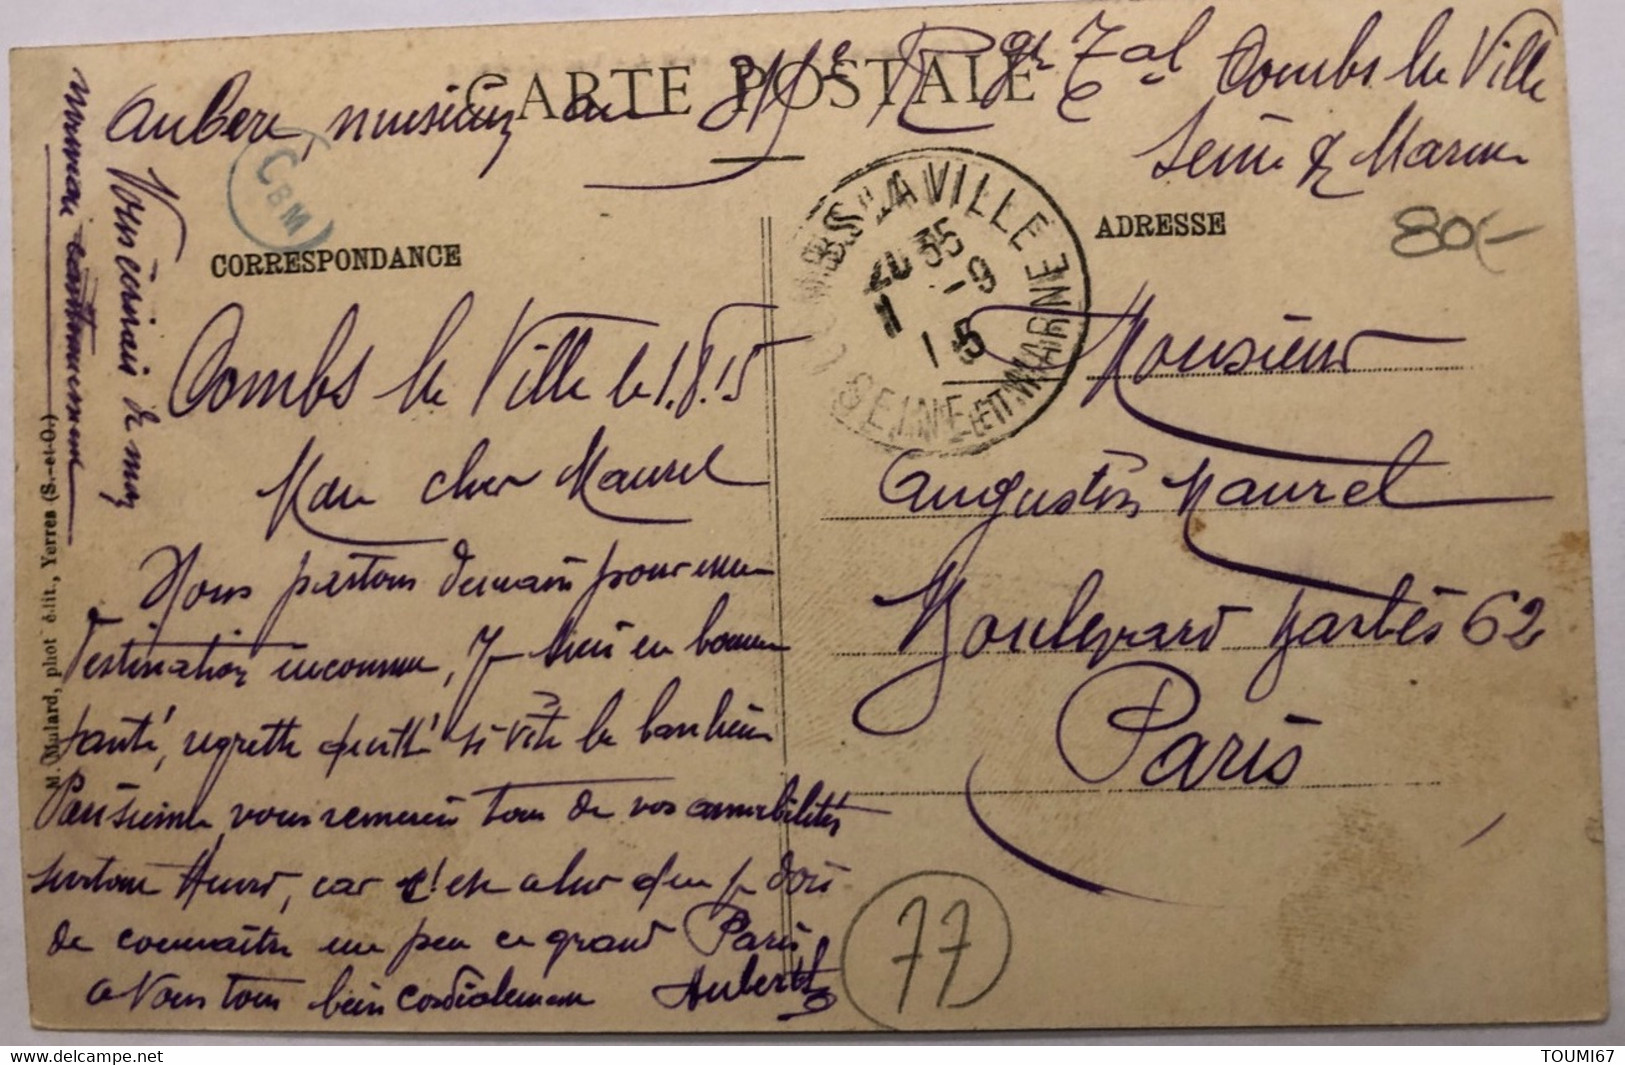 CARTE POSTALE
Aubert, musicien au Rgt Cal Combs la Ville
Seine & Marne
CBM
CORRESPONDANCE
ADRESSE
80/-
COMBS-LA-VILLE
20 35
1 -9
15
SEINE-ET-MARNE
Combs la Ville le 1.8.15
Mon cher Maurel
Nous partons demain pour une
destination inconnue, Je suis en bonne
santé, regrette quitté si vite la banlieue
Parisienne, vous remercie tous de vos amabilités
surtout Henri, car c'est à lui que je dois
de connaître un peu ce grand Paris
a Vous tous bien cordialement Aubert
Vous écrirais de mon
nouveau cantonnement
M. Mulard, phot édit., Yerres (S.-et-O.)
Monsieur
Augustin Maurel
Boulevard Barbès 62
Paris
77
TOUMI67